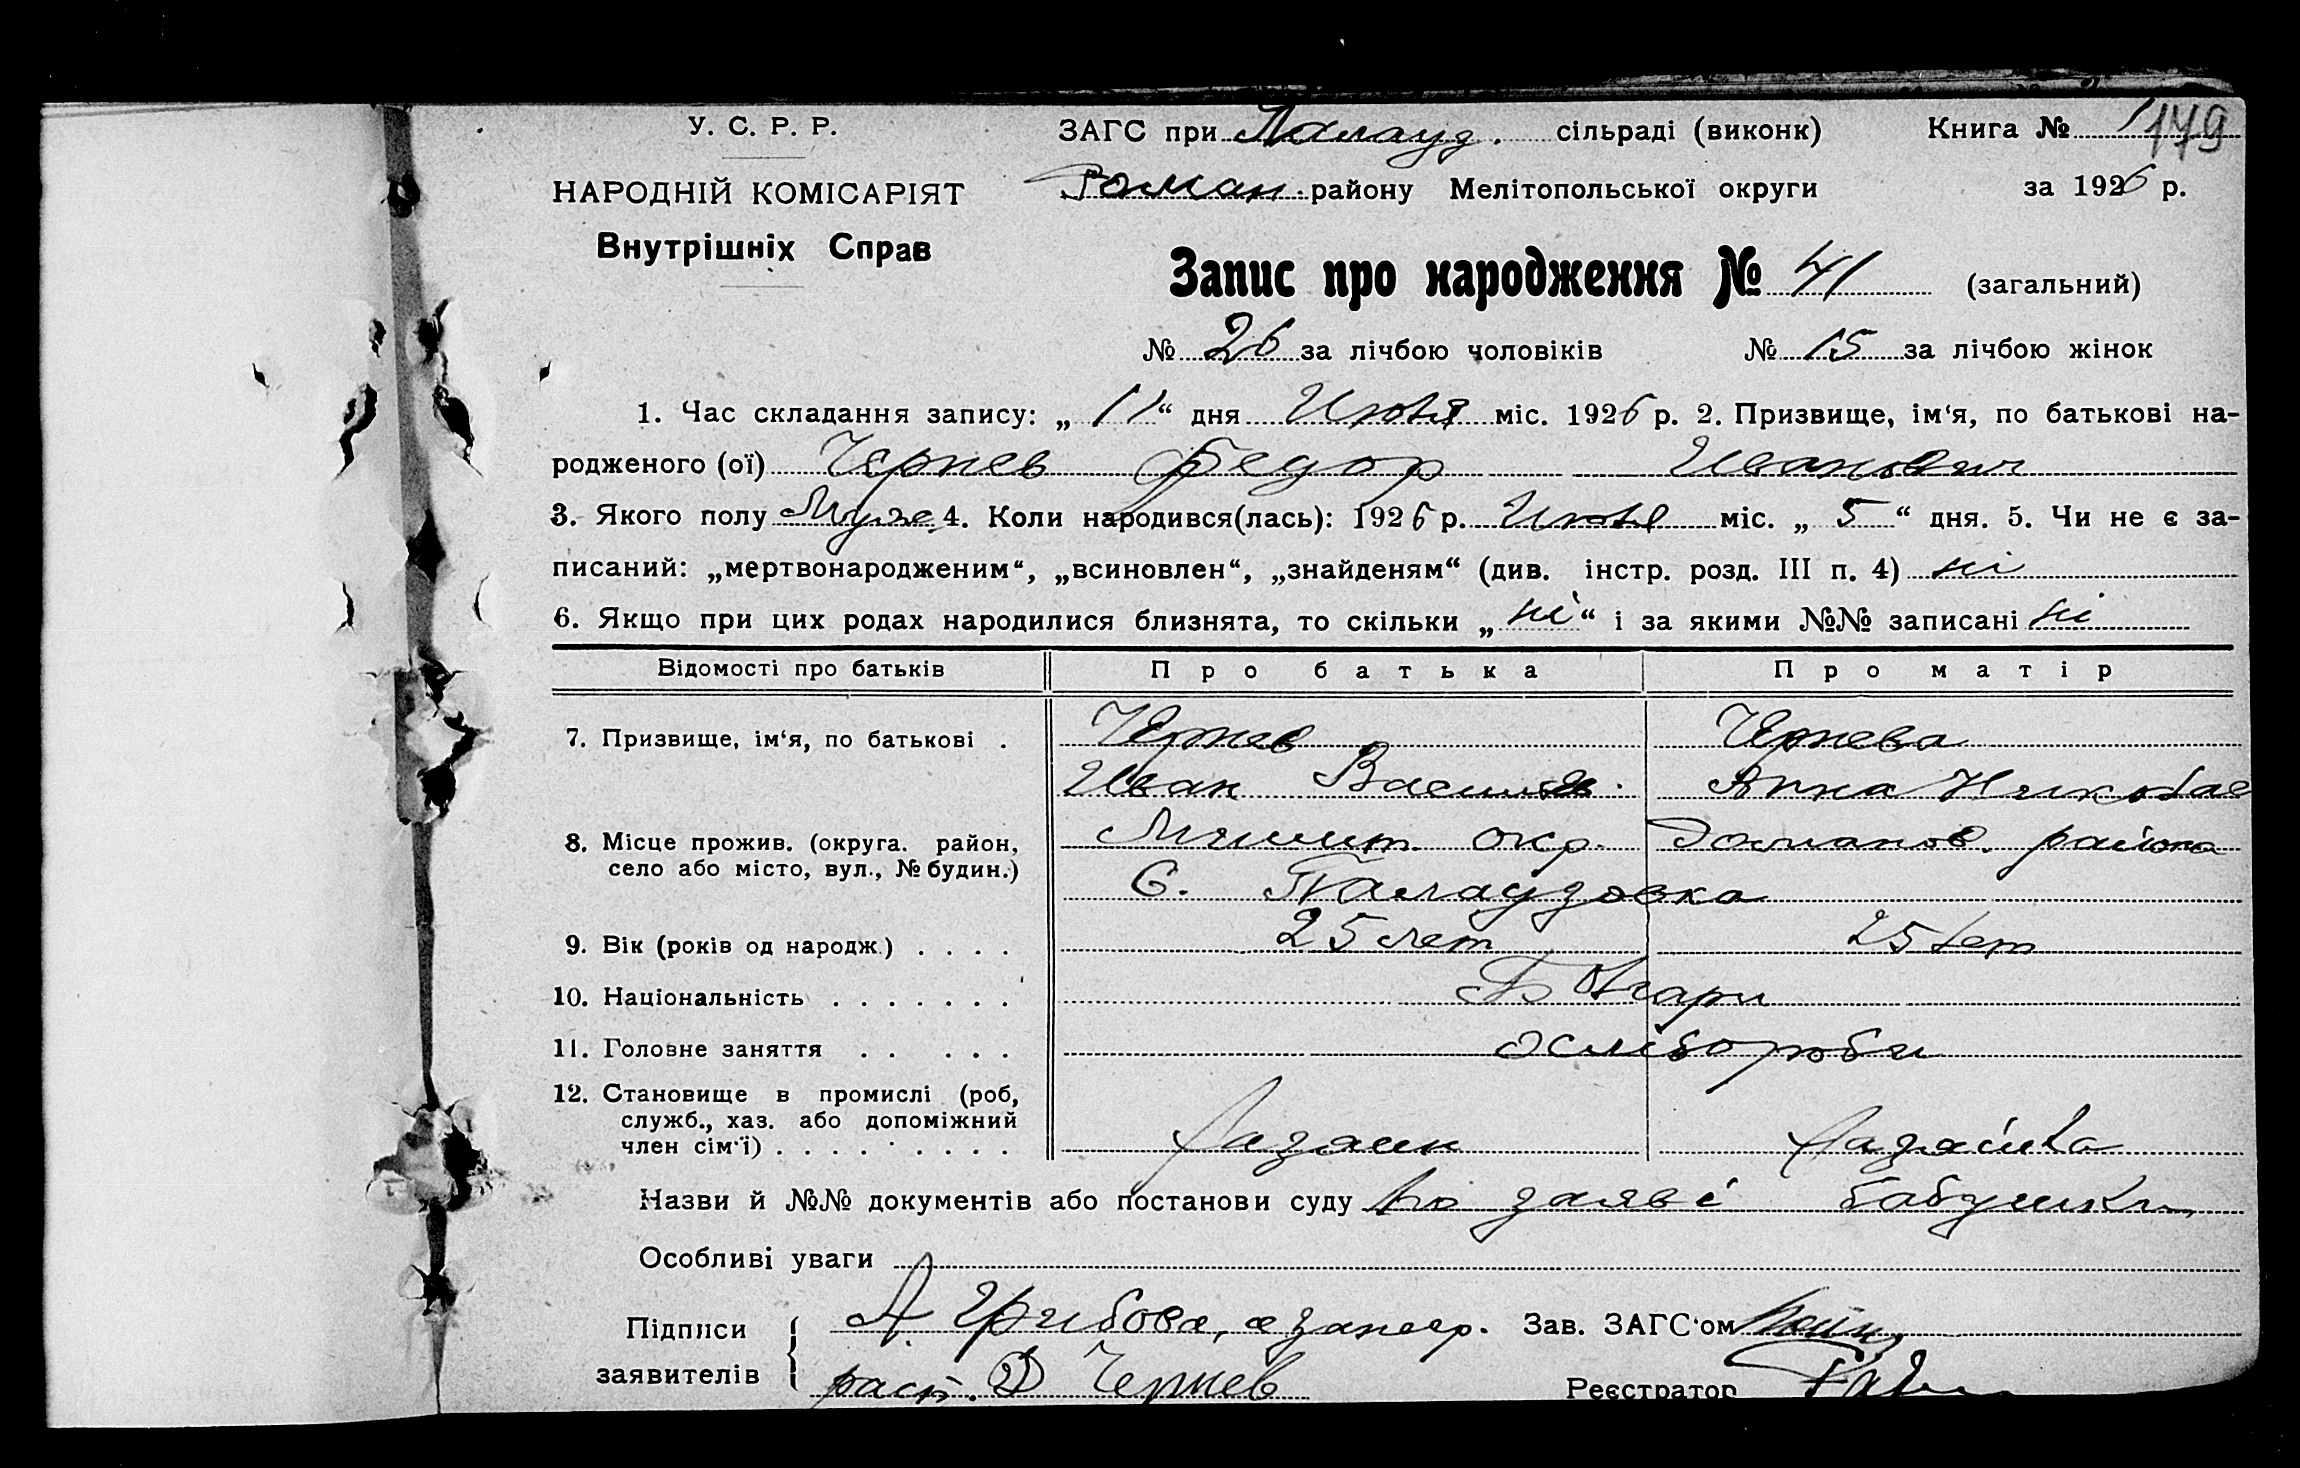 У. С. Р. Р.
НАРОДНІЙ КОМІСАРІЯТ
Внутрішніх Справ
ЗАГС при Палауз. сільраді (виконк) Книга № 1 179
Роман. району Мелітопольської округи за 1926 р.
Запис про народження № 41 (загальний)
№ 26 за лічбою чоловіків № 15 за лічбою жінок
1. Час складання запису: „ 11 “ дня Июля міс. 1926 р. 2. Призвище, ім‘я, по батькові на-
родженого (ої) Чернев Федор Иванович
3. Якого полу Муже 4. Коли народився(лась): 1926 р. Июля міс. „ 5 “ дня. 5. Чи не є за-
писаний: „мертвонародженим“, „всиновлен“, „знайденям“ (див. інстр. розд. III п. 4) ні
6. Якщо при цих родах народилися близнята, то скільки „ ні “ і за якими №№ записані ні
Відомості про батьків Про батька Про матір
7. Призвище, ім‘я, по батькові . Чернев Чернева
Иван Васильев. Анна Николае
8. Місце прожив. (округа. район, Мелит. окр. Романов. района
село або місто, вул., № будин.) С. Палаузовка
9. Вік (років од народж.) . . . . 25 лет 25 лет
10. Національність . . . . . . . Болгари
11. Головне заняття . . . . . хлібороби
12. Становище в промислі (роб,
служб., хаз. або допоміжний
член сім‘ї) . . . . . . . . . Хазяин Хазяйка
Назви й №№ документів або постанови суду по заяві бабушки
Особливі уваги
Підписи А. Грибова, а за негр. Зав. ЗАГС‘ом
заявителів расп. Д Чернев Реєстратор